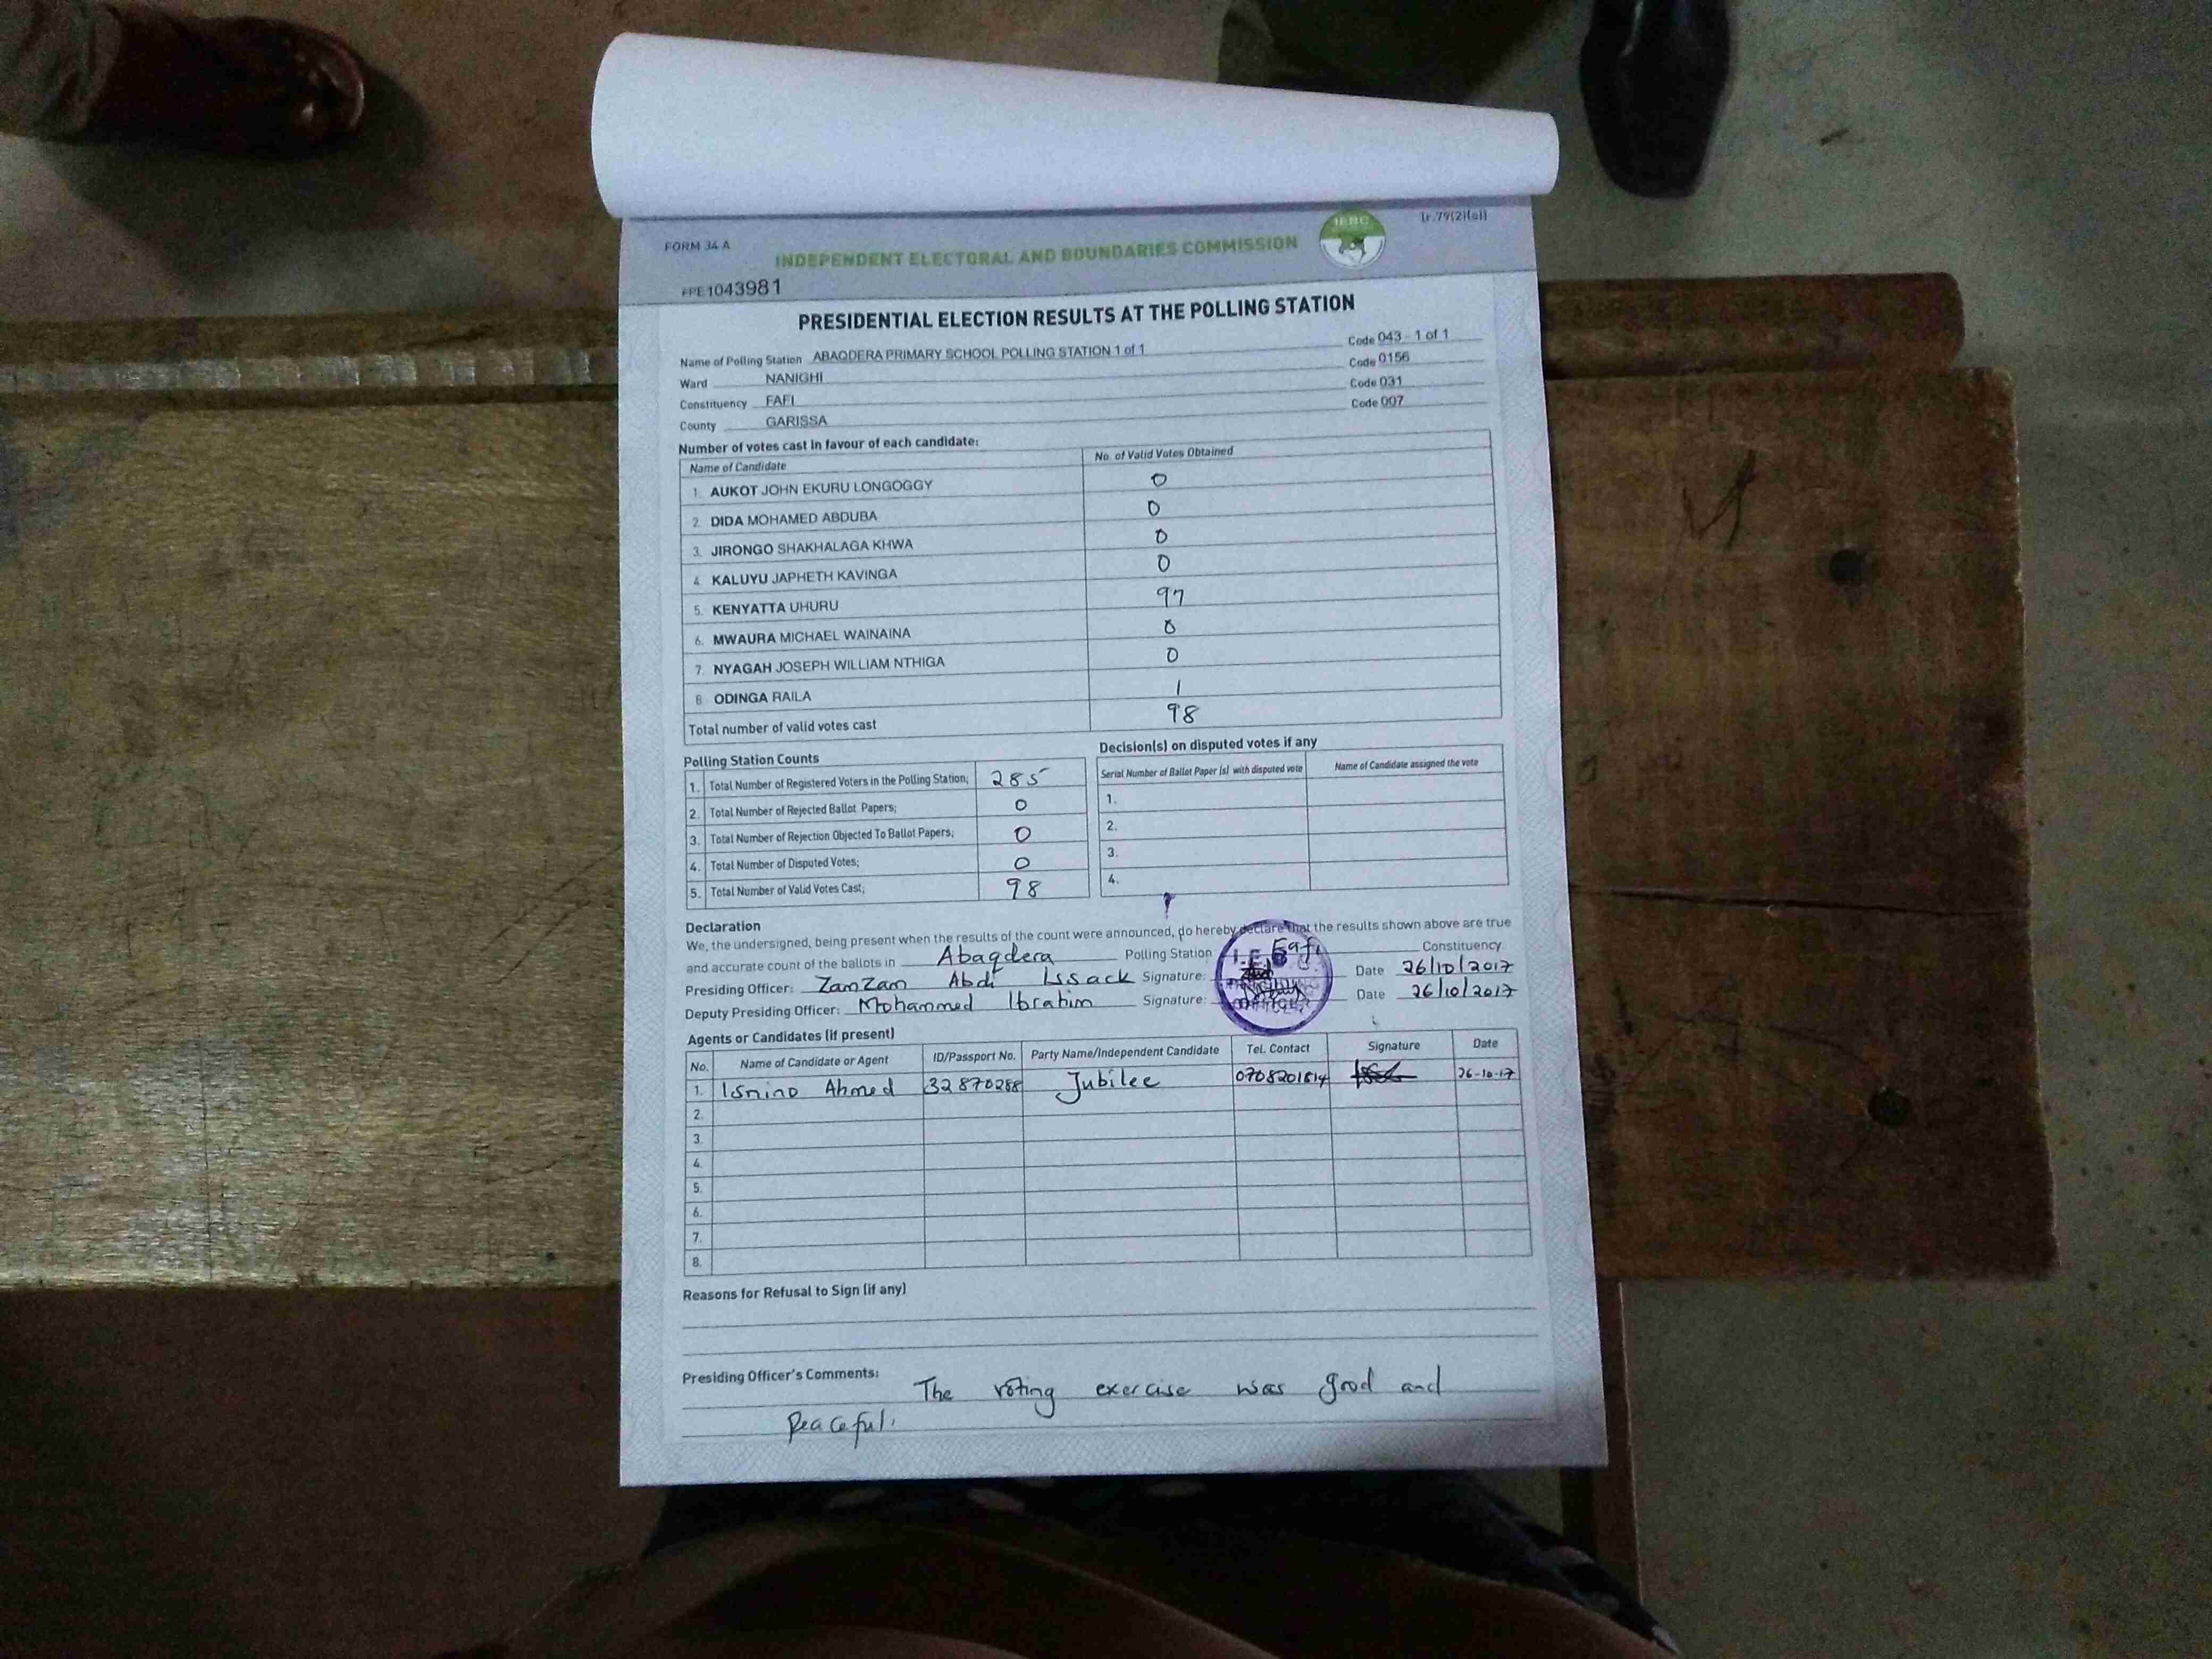 FORM 34 A
[r.79(2)(a)]
INDEPENDENT ELECTORAL AND BOUNDARIES COMMISSION
IEBC
FPE1043981
PRESIDENTIAL ELECTION RESULTS AT THE POLLING STATION
Name of Polling Station ABAQDERA PRIMARY SCHOOL POLLING STATION 1 of 1 Code 043 - 1 of 1
Ward NANIGHI Code 0156
Constituency FAFI Code 031
County GARISSA Code 007
Number of votes cast in favour of each candidate:
Name of Candidate No. of Valid Votes Obtained
1. AUKOT JOHN EKURU LONGOGGY 0
2. DIDA MOHAMED ABDUBA 0
3. JIRONGO SHAKHALAGA KHWA 0
4. KALUYU JAPHETH KAVINGA 0
5. KENYATTA UHURU 97
6. MWAURA MICHAEL WAINAINA 0
7. NYAGAH JOSEPH WILLIAM NTHIGA 0
8. ODINGA RAILA 1
Total number of valid votes cast 98
Polling Station Counts
1. Total Number of Registered Voters in the Polling Station; 285
2. Total Number of Rejected Ballot Papers; 0
3. Total Number of Rejection Objected To Ballot Papers; 0
4. Total Number of Disputed Votes; 0
5. Total Number of Valid Votes Cast; 98
Decision(s) on disputed votes if any
Serial Number of Ballot Paper (s) with disputed vote Name of Candidate assigned the vote
1.
2.
3.
4.
Declaration
We, the undersigned, being present when the results of the count were announced, do hereby declare that the results shown above are true
and accurate count of the ballots in Abaqdera Polling Station Fafi Constituency
Presiding Officer: ZamZam Abdi Issack Signature: Date 26/10/2017
Deputy Presiding Officer: Mohammed Ibrahim Signature: Date 26/10/2017
Agents or Candidates (if present)
No. Name of Candidate or Agent ID/Passport No. Party Name/Independent Candidate Tel. Contact Signature Date
1. Isnino Ahmed 32870288 Jubilee 0708201814 26-10-17
2.
3.
4.
5.
6.
7.
8.
Reasons for Refusal to Sign (if any)
Presiding Officer's Comments: The voting exercise was good and
peaceful.